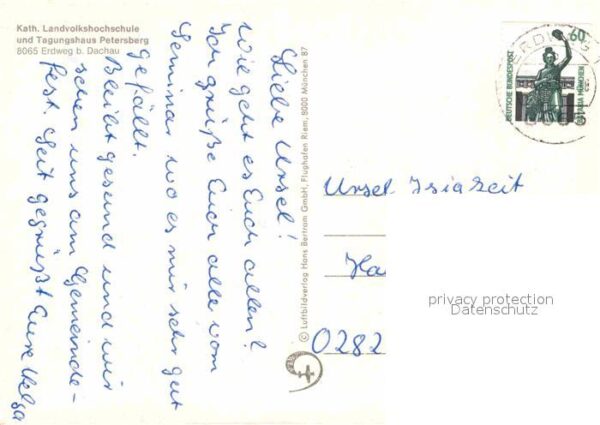 Kath. Landvolkshochschule
und Tagungshaus Petersberg
8065 Erdweg b. Dachau
Liebe Ursel!
Wie geht es Euch allen?
Ich grüße Euch alle vom
Seminar wo es mir sehr gut
gefällt.
Bleibt gesund und wir
sehen uns am Gemeinde-
fest. Seit gegrüßt Eure Helga
© Luftbildverlag Hans Bertram GmbH, Flughafen Riem, 8000 München 87
60
DEUTSCHE BUNDESPOST
BAVARIA MÜNCHEN
ERDWEG 1
Ursel
Ha
0282
privacy protection
Datenschutz